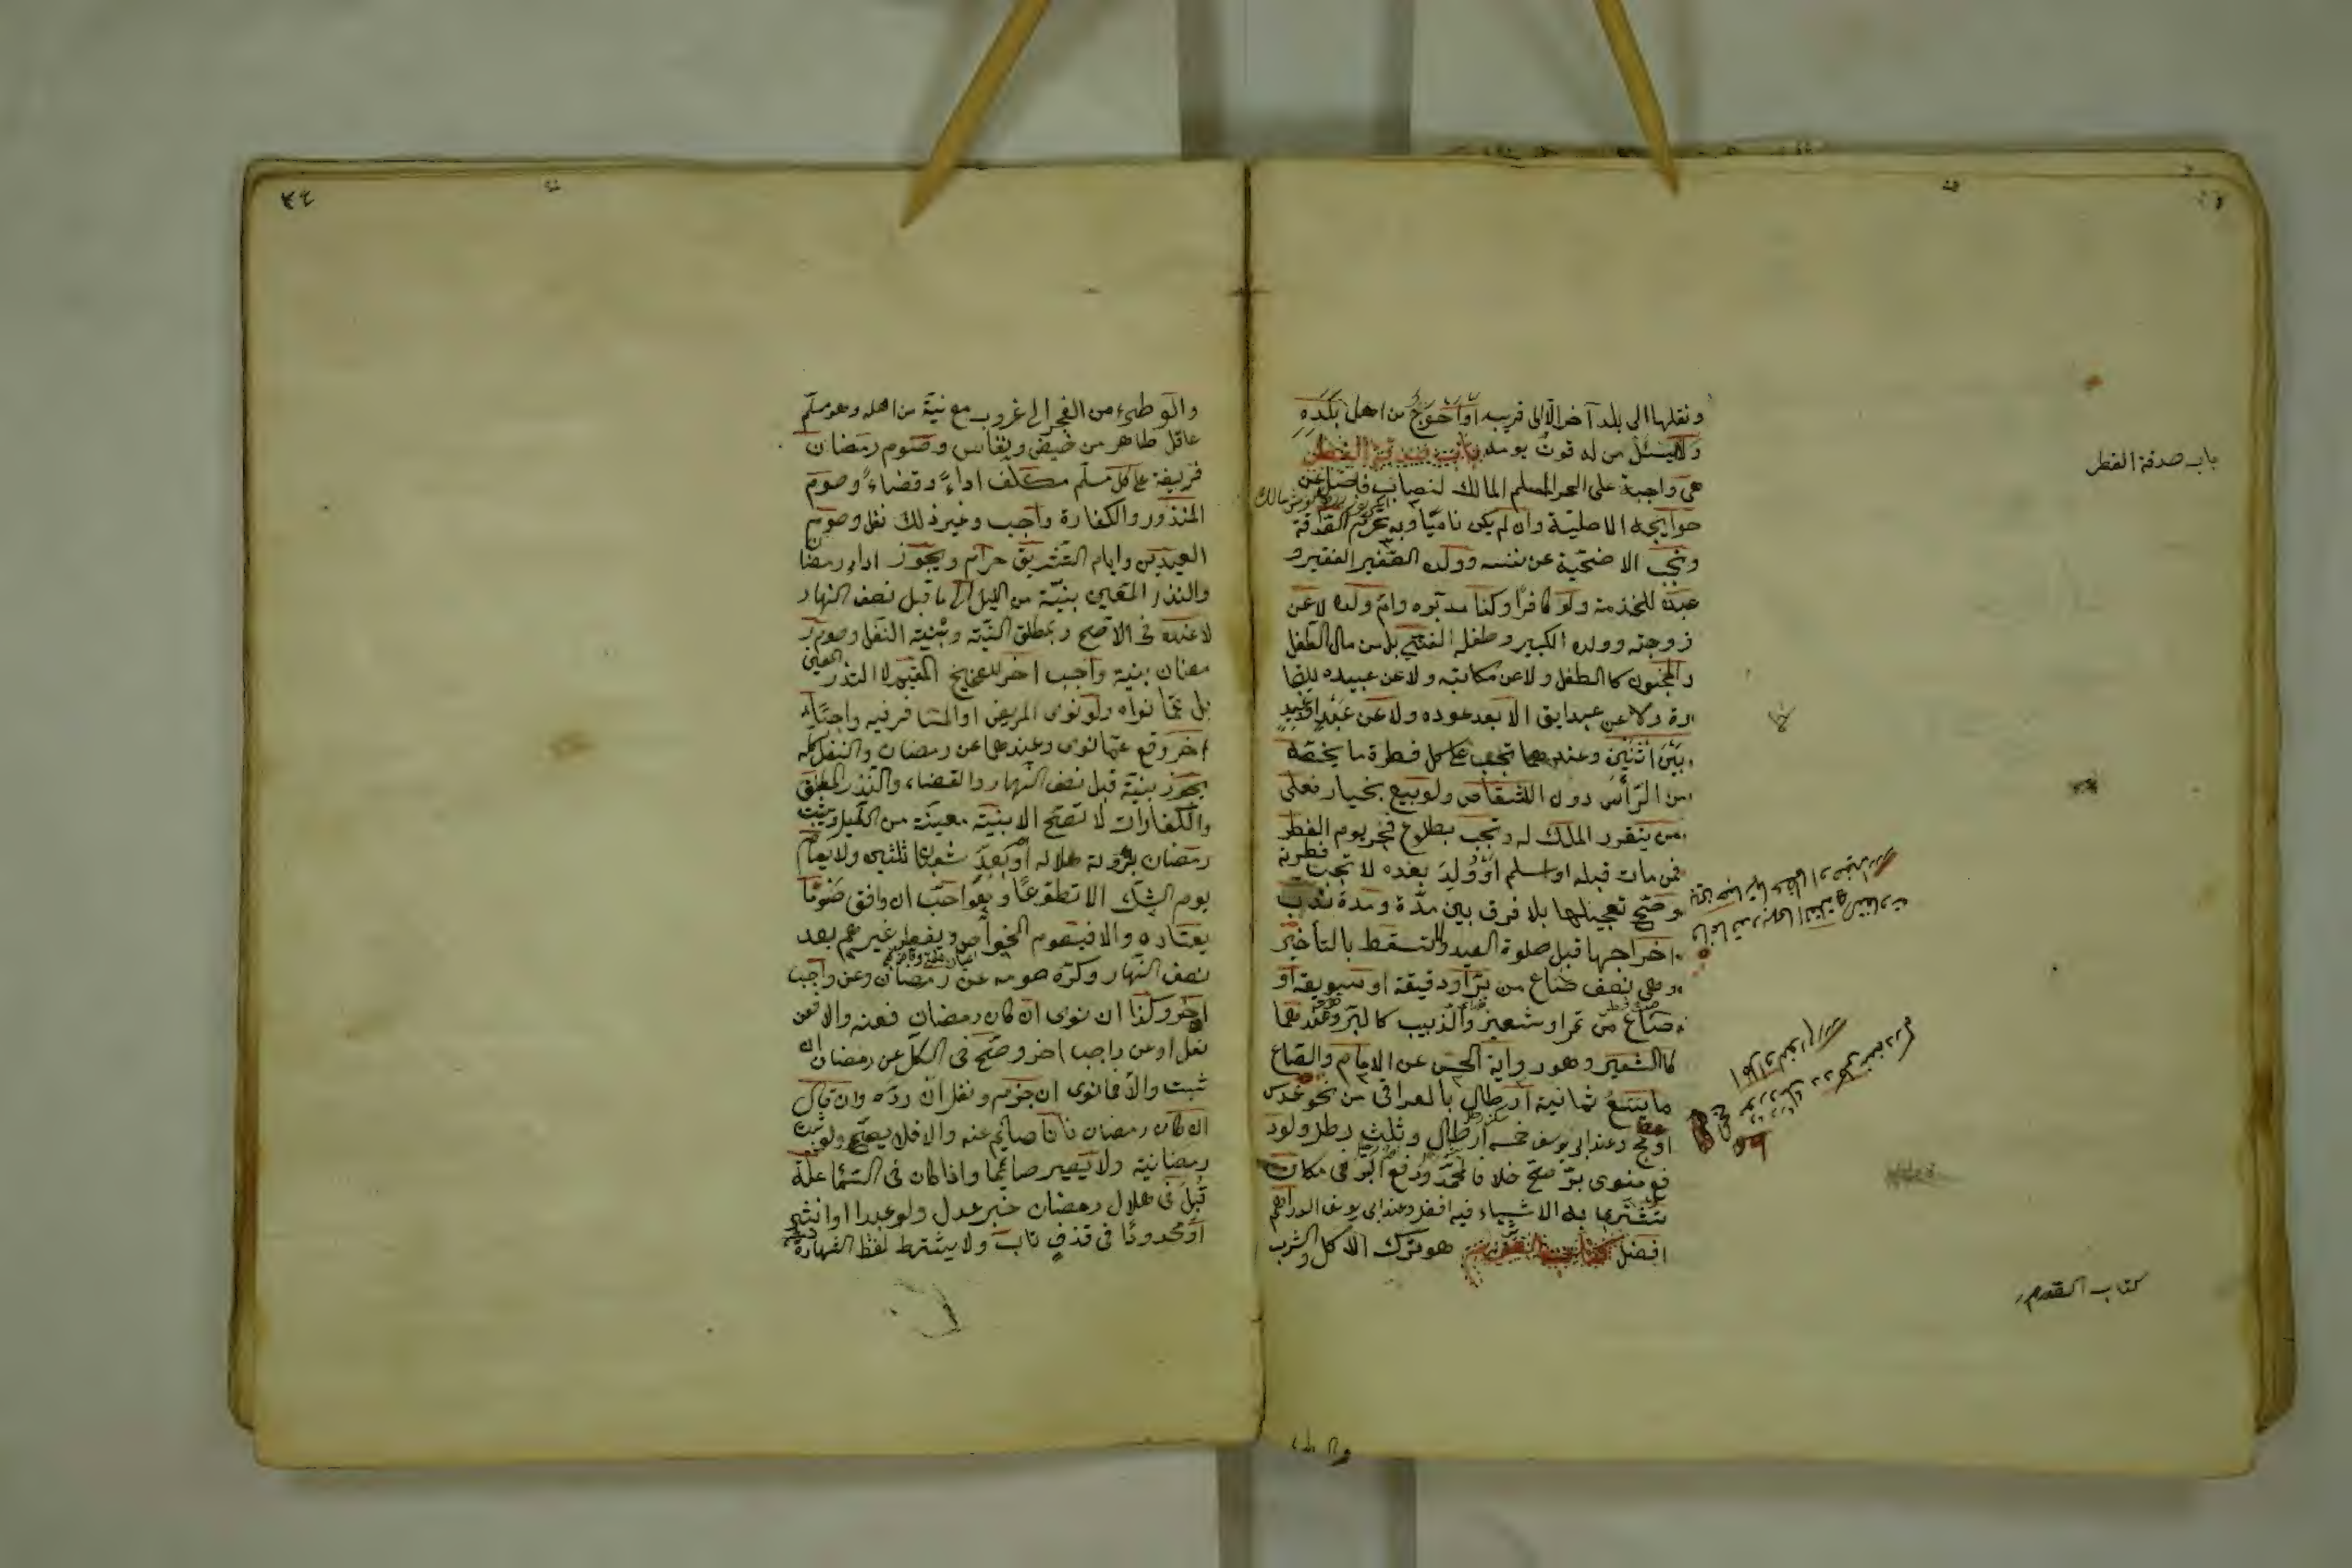 باب صدقة الفطر
ونقلها الى بلد آخر الّا الى قريبه او احوج من اهل بلده
ولا يسئل من له قوت يومه باب صدقة الفطر
هى واجبة على الحر المسلم المالك لنصاب فاضل عن
حوايجه الاصلية وان لم يكن ناميًا وبه تحرم الصّدقة
وتجب الاضحية عن نفسه وولده الصّغير الفقير و
عبده للخدمة ولو كافرًا وكذا مدبّره وامّ ولده لا عن
زوجته وولده الكبير وطفله الغنىّ بل من مال الطفل
والمجنون كالطفل ولا عن مكاتبه ولا عن عبيده للتجا
رة ولا عن عبد ابق الا بعد عوده ولا عن عَبْدٍ او عَبيدٍ
بَيْنَ اثنَيْن وعندهما تجب على كل فطرة ما يخصّه
من الرّأس دون الاشقاص ولو بيع بخيار فعلى
من يتقرر الملك له وتجب بطلوع فجر يوم الفطر
فمن مات قبله او اسلم اَوْ وُلِدَ بعده لا تجب فطرته
وصحّ تعجيلها بلا فرق بين مدّة ومدة ندب
اخراجها قبل صلوة العيد ولا تسقط بالتأخير
وهى نصف صاع من بُرّ او دقيقه او سويقه او
صاع من تمر او شعير والذبيب كالبر وعندهما
كالشعير وهو رواية الحسن عن الامام والصّاع
ما يسَعُ ثمانية ارطال بالعراقى من نحو عدس
او مج وعند ابى يوسف خمسة ارطال وثلث رطل ولو د
فع منوى برّ صحّ خلافا لمحمّد ودفع البُر فى مكان
تُشْترى به الاشياء فيه افضل وعند ابى يوسف الدراهم
افضل كتاب الصّوم هو ترك الاكل والشرب
كتاب الصّوم
والوطىء
٤٤
والوطىء من الفجر الى غروب مع نيّة من اهله وهو مسلم
عاقل طاهر من حيض ونفاس وصوم رمضان
فريضة على كل مسلم مكلف اداءً وقضاءً وصوم
المنذور والكفارة واجب وغير ذلك نفل وصوم
العيدين وايام التّشريق حرام ويجوز اداء رمضا
ن
والنذر المعين بنيّة من الليل الى ما قبل نصف النهار
لا عنده فى الاصح وبمطلق النيّة وبنية النفل وصوم ر
مضان بنية واجب اخر للصحيح المقيم لا النذر المعين
بل عمّا نواه ولو نوى المريض او المسافر فيه واجبًا
اخر وقع عمّا نوى وعندهما عن رمضان والنفل كلّه
يجوز بنية قبل نصف النّهار والقضاء والنّذر المطلق
والكفارات لا تصحّ الا بنيّة معينّة من الليل ويثبت
رمضان برؤية هلاله اَوْ بعَدِّ شعبان ثلثين ولا يصام
يوم الشك الا تطوعًا وهُوَ احبّ ان وافق صَومًا
يعتاده والا فيصوم الخواص ويفطر غيرهم بعد
نصف النّهار وكره صومه عن رمضان وعن واجب
اخر وكذا ان نوى ان كان رمضان فعنه والا فعن
نفل او عن واجب اخر وصحّ فى الكلّ عن رمضان ان
ثبت والا فما نوى ان جزم ونفل ان ردّد وان قال
ان كان رمضان فانا صائم عنه والا فلا يصحّ ولو ثبت
رمضانيته ولا يصير صائمًا واذا كان فى السّماء علّة
قُبِلَ فى هلال رمضان خبر عدل ولو عبدا او انثى
اَوْ محدودًا فى قذف تاب ولا يشترط لفظ الشهادة